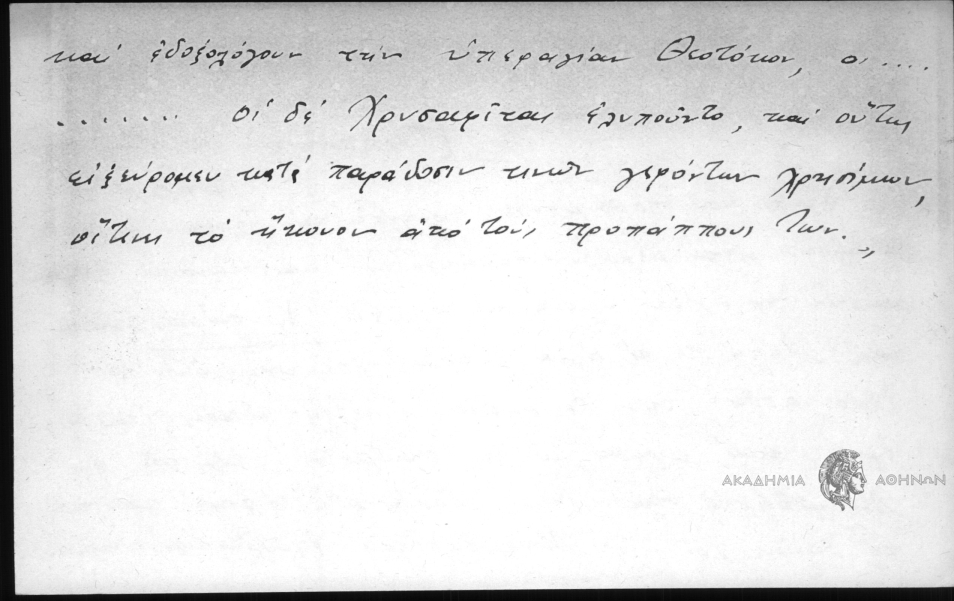 καί ἐδοξολόγουν τήν ὑπεραγίαν Θεοτόκον, οι ....
....... οἱ δέ Χρυσαφῖται ἐλυποῦντο, καί οὕτως
εἰξεύρομεν κατά παράδοσιν τινῶν γερόντων χρησίμων,
οἵτινες τό ἤκουον ἀπό τούς προπάππους των."
ΑΚΑΔΗΜΙΑ ΑΘΗΝΩΝ